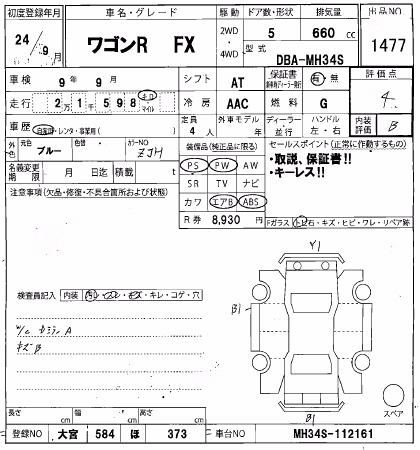 初度登録年月 車名・グレード 駆動 ドア数・形状 排気量 出品NO
24年 9月 ワゴンR FX 2WD・4WD 5 660cc 1477
型式 DBA-MH34S
車検 9年9月 シフト AT 保証書 有・無 評価点 4
走行 2万1千598 キロ マイル 冷房 AAC 燃料 G
車歴 自家用・レンタ・事業用( ) 定員 4人 外車モデル 年 ディーラー・並行 ハンドル 左・右 内装評価 B
外色 元色 ブルー 色替 カラーNO ZJH
装備品(純正品に限る) セールスポイント(正常に作動するもの)
名義変更期限 月 日迄 積載 t
PS PW AW ・取説、保証書!!
SR TV ナビ ・キーレス!!
カワ エアB ABS
注意事項(欠品・修復・不具合箇所および状態)
R券 8,930円 Fガラス(トビ石・キズ・ヒビ・ワレ・リペア跡
Y1
B1
検査員記入 内装
キレ・コゲ・穴
キズB
スペア
B1
長さ cm 幅 cm 高さ cm
登録NO 大宮 584 ほ 373 車台NO MH34S-112161